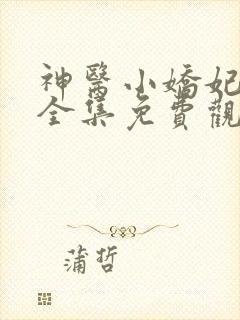 神醫小嬌妃
全集免費觀
蒲哲